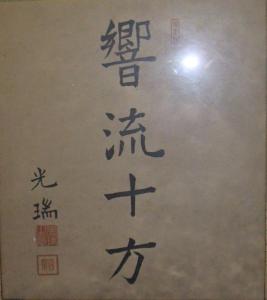 響流十方
光瑞